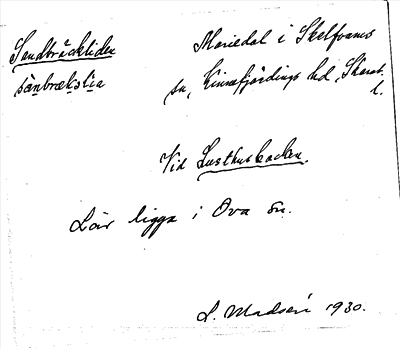 Sandbräckliden
sànbrækslia
Mariedal i Skelfvums
sn, Kinnefjärdings hd, Skarab.
l.
Vid Lusthusbacken.
Lär ligga i Ova sn.
L. Madsén 1930.